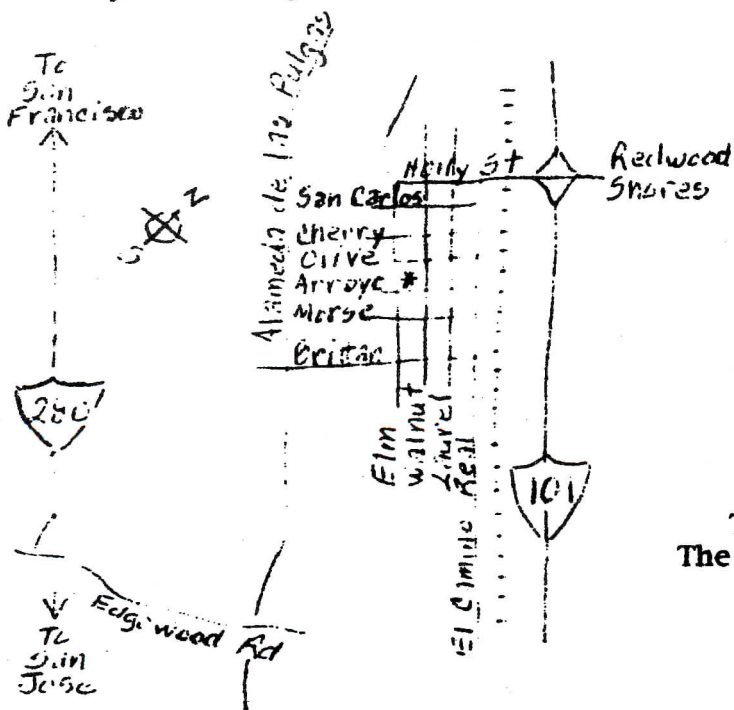 To
San
Francisco
Alameda de las Pulgas
Holly St
Redwood
Shores
San Carlos
N
S
Cherry
Olive
Arroyo *
Morse
Brittan
280
Elm
Walnut
Laurel
El Camino Real
101
The
Edgewood Rd
To
San
Jose